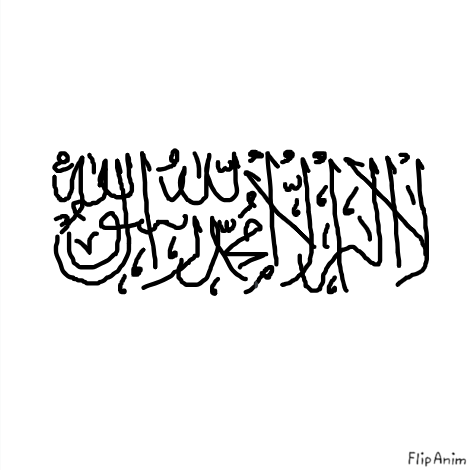 لا إله إلا الله محمد رسول الله
FlipAnim